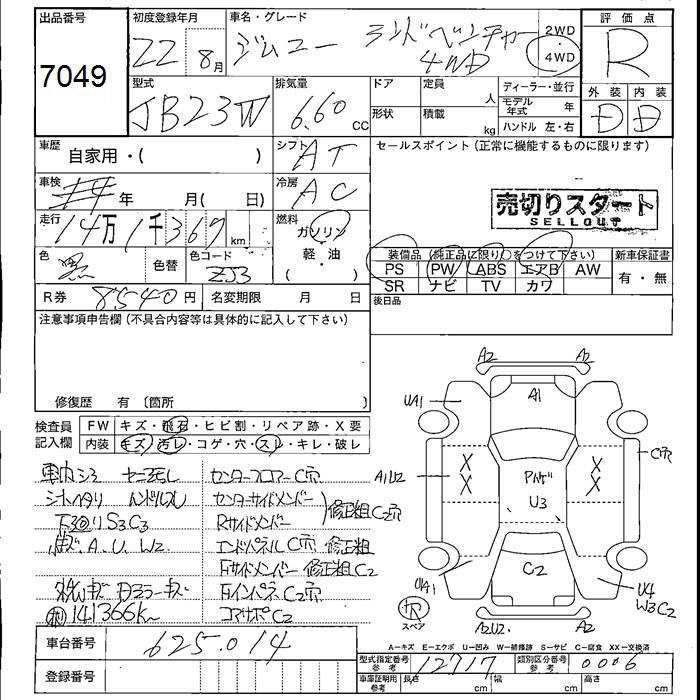 出品番号 7049
初度登録年月 22 8月
車名・グレード ジムニー ランドベンチャー 4WD
2WD・4WD
評価点 R
外装 内装
D D
型式 JB23W
排気量 6.60 CC
ドア 定員 人
形状 積載 kg
ディーラー・並行
モデル年式 年
ハンドル 左・右
車歴 自家用・( )
シフト AT
セールスポイント (正常に機能するものに限ります)
車検 年 月( 日)
冷房 AC
売切りスタート
SELLOUT
走行 14万1千367km
燃料 ガソリン・軽・油 ( )
色 黒 色替 色コード ZJ3
装備品 (純正品に限り○をつけて下さい) 新車保証書
PS PW ABS エアB AW 有・無
SR ナビ TV カワ
R券 8540円 名変期限 月 日
後日品
注意事項申告欄 (不具合内容等は具体的に記入して下さい)
修復歴 有 〔箇所 〕
検査員記入欄 FW キズ・飛石・ヒビ割・リペア跡・X要
内装 キズ・汚レ・コゲ・穴・スレ・キレ・破レ
A2 A2
UA1 A1
A1U2 X X X X C穴
U3
C2
UA1 U4
W3C2
スペア A2U2. A2
センターフロアーC穴
シートヘタリ ハンドルスレ センターサイドメンバー
下回りS3C3 Rサイドメンバー 修正粗C2穴
A.U.W2 エンドパネルC穴 修正粗
Fサイドメンバー 修正粗C2
Fインパネ C2穴
141366km コアサポC2
A−キズ E−エクボ U−凹み W−補修跡 S−サビ C−腐食 XX−交換済
車台番号 625014
型式指定番号 参考 12717 類別区分番号 参考 0006
登録番号
車庫証明用 参考 長さ cm 幅 cm 高さ cm